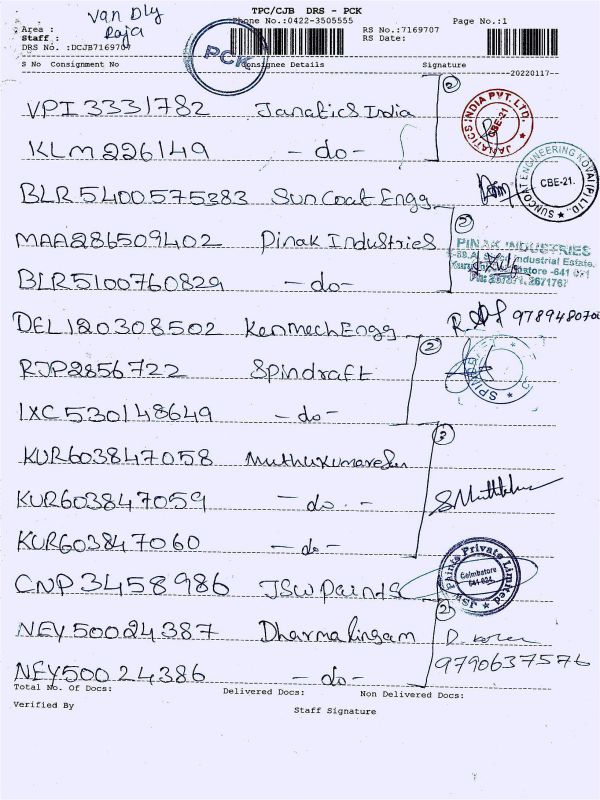 Van Dly
Raja
TPC/CJB DRS - PCK
Phone No.:0422-3505555
Page No.:1
Area :
Staff :
DRS No. :DCJB7169707
RS No.:7169707
RS Date:
PCK
S No Consignment No Consignee Details Signature
20220117
VPI 3331782 Janatics India
②
JANATICS INDIA PVT. LTD. CBE-21
KLM226149 -do-
BLR5400575383 Suncoat Engg
SUNCOAT ENGINEERING KOVAI (P) LTD. CBE-21.
MAA286509402 Pinak Industries
②
PINAK INDUSTRIES
Industrial Estate,
-641 021
2671767
BLR5100760829 -do-
DEL120308502 Kenmech Engg
RJP2856722 Spindraft
②
IXC530148649 -do-
KUR603847058 Muthukumaresan
③
KUR603847059 -do-
KUR603847060 -do-
CNP3458986 JSW Paints
JSW Paints Private Limited Coimbatore 641 021
NEY50024387 Dharmalingam
②
NEY50024386 -do-
9790637576
Total No. Of Docs: Delivered Docs: Non Delivered Docs:
Verified By Staff Signature